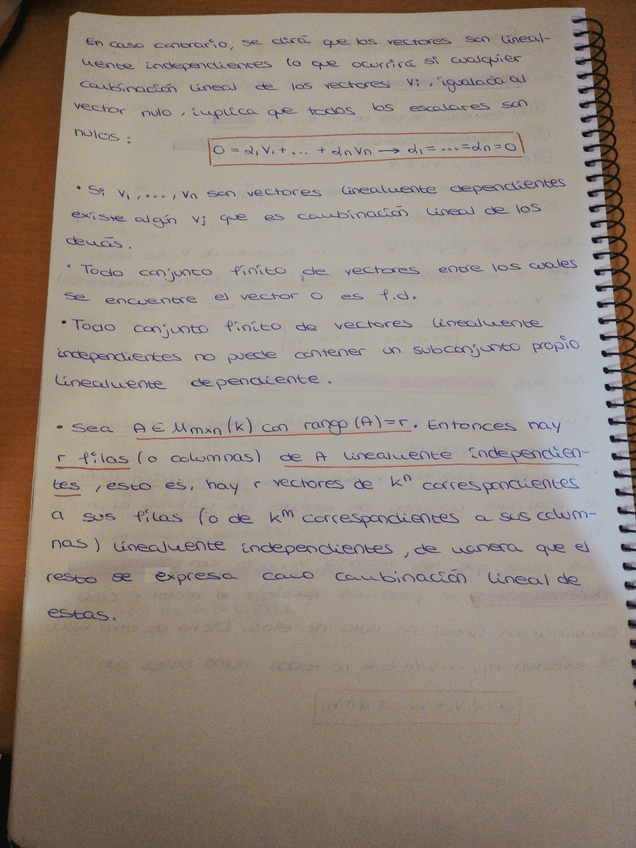 En caso contrario, se dirá que los vectores son lineal-
mente independientes lo que ocurrirá si cualquier
combinación lineal de los vectores vi, igualada al
vector nulo, implica que todos los escalares son
nulos:
0 = α₁v₁ + ... + αnvn → α₁ = ... = αn = 0
• Si v₁, ..., vn son vectores linealmente dependientes
existe algún vj que es combinación lineal de los
demás.
• Todo conjunto finito de vectores entre los cuales
se encuentre el vector 0 es l.d.
• Todo conjunto finito de vectores linealmente
independientes no puede contener un subconjunto propio
linealmente dependiente.
• Sea A ∈ Mmxn(k) con rango(A)=r. Entonces hay
r filas (o columnas) de A linealmente independien-
tes, esto es, hay r vectores de kⁿ correspondientes
a sus filas (o de kᵐ correspondientes a sus colum-
nas) linealmente independientes, de manera que el
resto se expresa como combinación lineal de
estas.